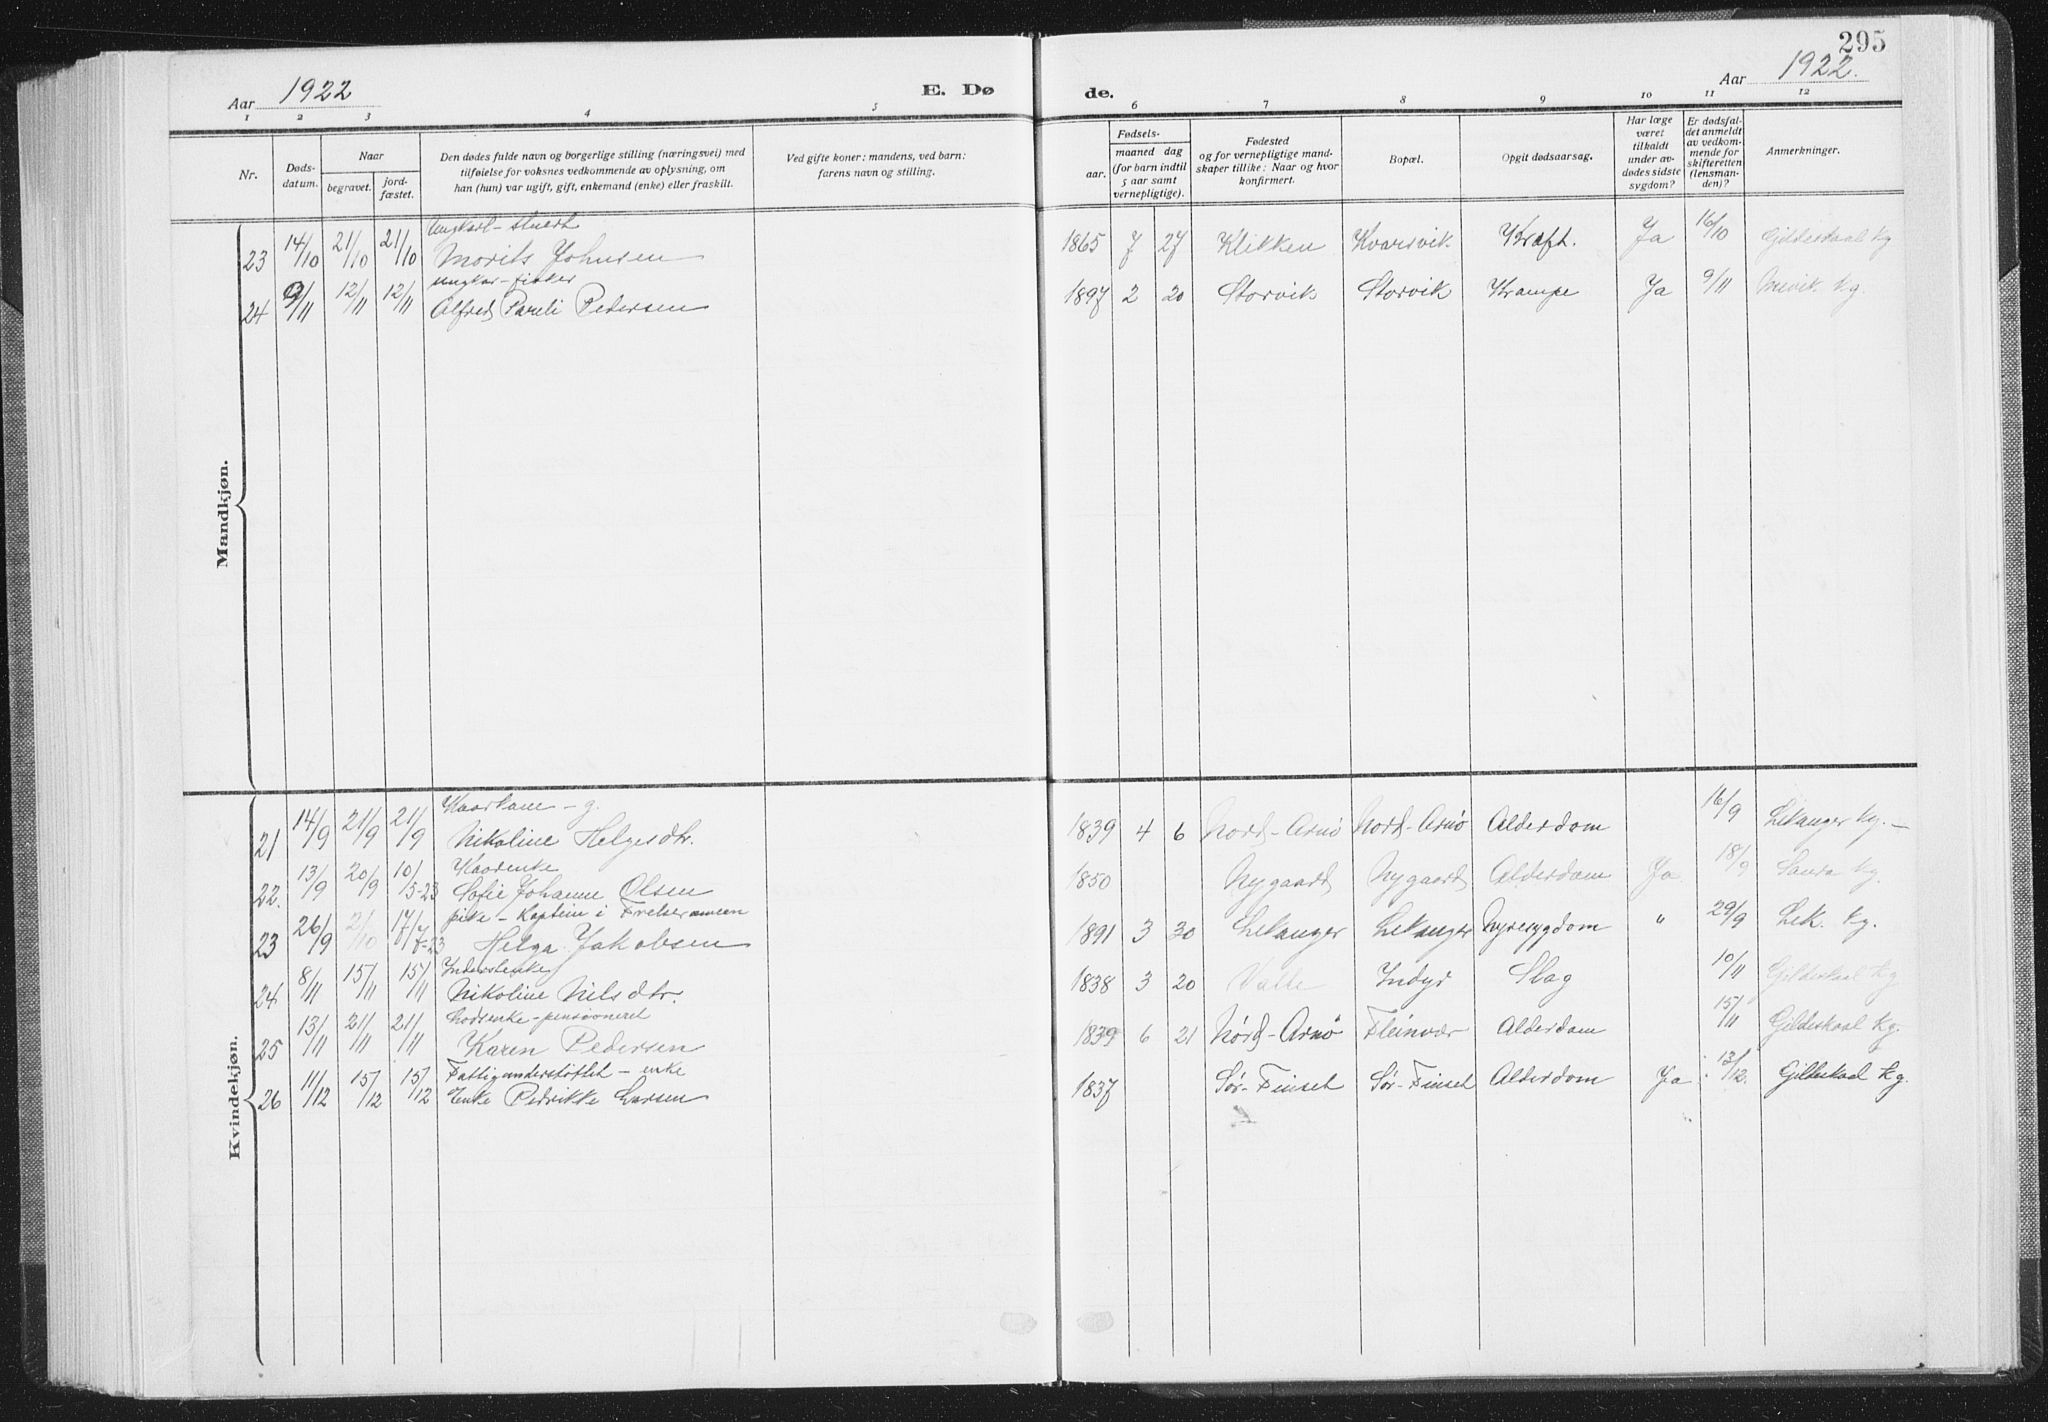 295
Aar 1922 E. Døde. Aar 1922.
1 2 3 4 5 6 7 8 9 10 11 12
Nr.
Døds-
datum.
Naar
begravet.
jord-
fæstet.
Den dødes fulde navn og borgerlige stilling (næringsvei) med
tilføielse for voksnes vedkommende av oplysning, om
han (hun) var ugift, gift, enkemand (enke) eller fraskilt.
Ved gifte koner: mandens, ved barn:
farens navn og stilling.
Fødsels-
aar.
maaned dag
(for barn indtil
5 aar samt
vernepligtige).
Fødested
og for vernepligtige mand-
skaper tillike: Naar og hvor
konfirmert.
Bopæl.
Opgit dødsaarsag.
Har læge
været
tilkaldt
under av-
dødes sidste
sygdom?
Er dødsfal-
det anmeldt
av vedkom-
mende for
skifteretten
(lensman-
den)?
Anmerkninger.
Mandkjøn.
Ungkarl - stuert
23 14/10 21/10 21/10 Morits Johnsen 1865 7 27 Klikken Kvarsvik Kræft. Ja 16/10 Gildeskaal kg
ungkar - fisker
24 9/11 12/11 12/11 Alfred Pareli Pedersen 1897 2 20 Storvik Storvik Krampe Ja 9/11 kg.
Kvindekjøn.
Kaarkone - g.
21 14/9 21/9 21/9 Nikoline Helgesdtr. 1839 4 6 Nord-Arnø Nord-Arnø Alderdom 16/9 Lekanger kg. -
Kaardenke
22. 13/9 20/9 10/5-23 Sofie Johanne Olsen 1850 Nygaard Nygaard Alderdom Ja 18/9 Saura kg.
pike - Kaptein i Frelsesarmeen
23 26/9 2/10 17/7-23 Helga Jakobsen 1891 3 30 Lekanger Lekanger Nyresygdom " 29/9 Lek. kg.
Inderstenke
24 8/11 15/11 15/11 Nikoline Nilsdtr. 1838 3 20 Valle Indyr Slag 10/11 Gildeskaal kg
Losenke - pensioneret
25 13/11 21/11 21/11 Karen Pedersen 1839 6 21 Nord-Arnø Fleinvær Alderdom 15/11 Gildeskaal kg.
Fattigunderstøttet - enke
26 11/12 15/12 15/12 Enke Pedrikke Larsen 1837 Sør-Finset Sør-Finset Alderdom Ja 13/12. Gildeskaal kg.